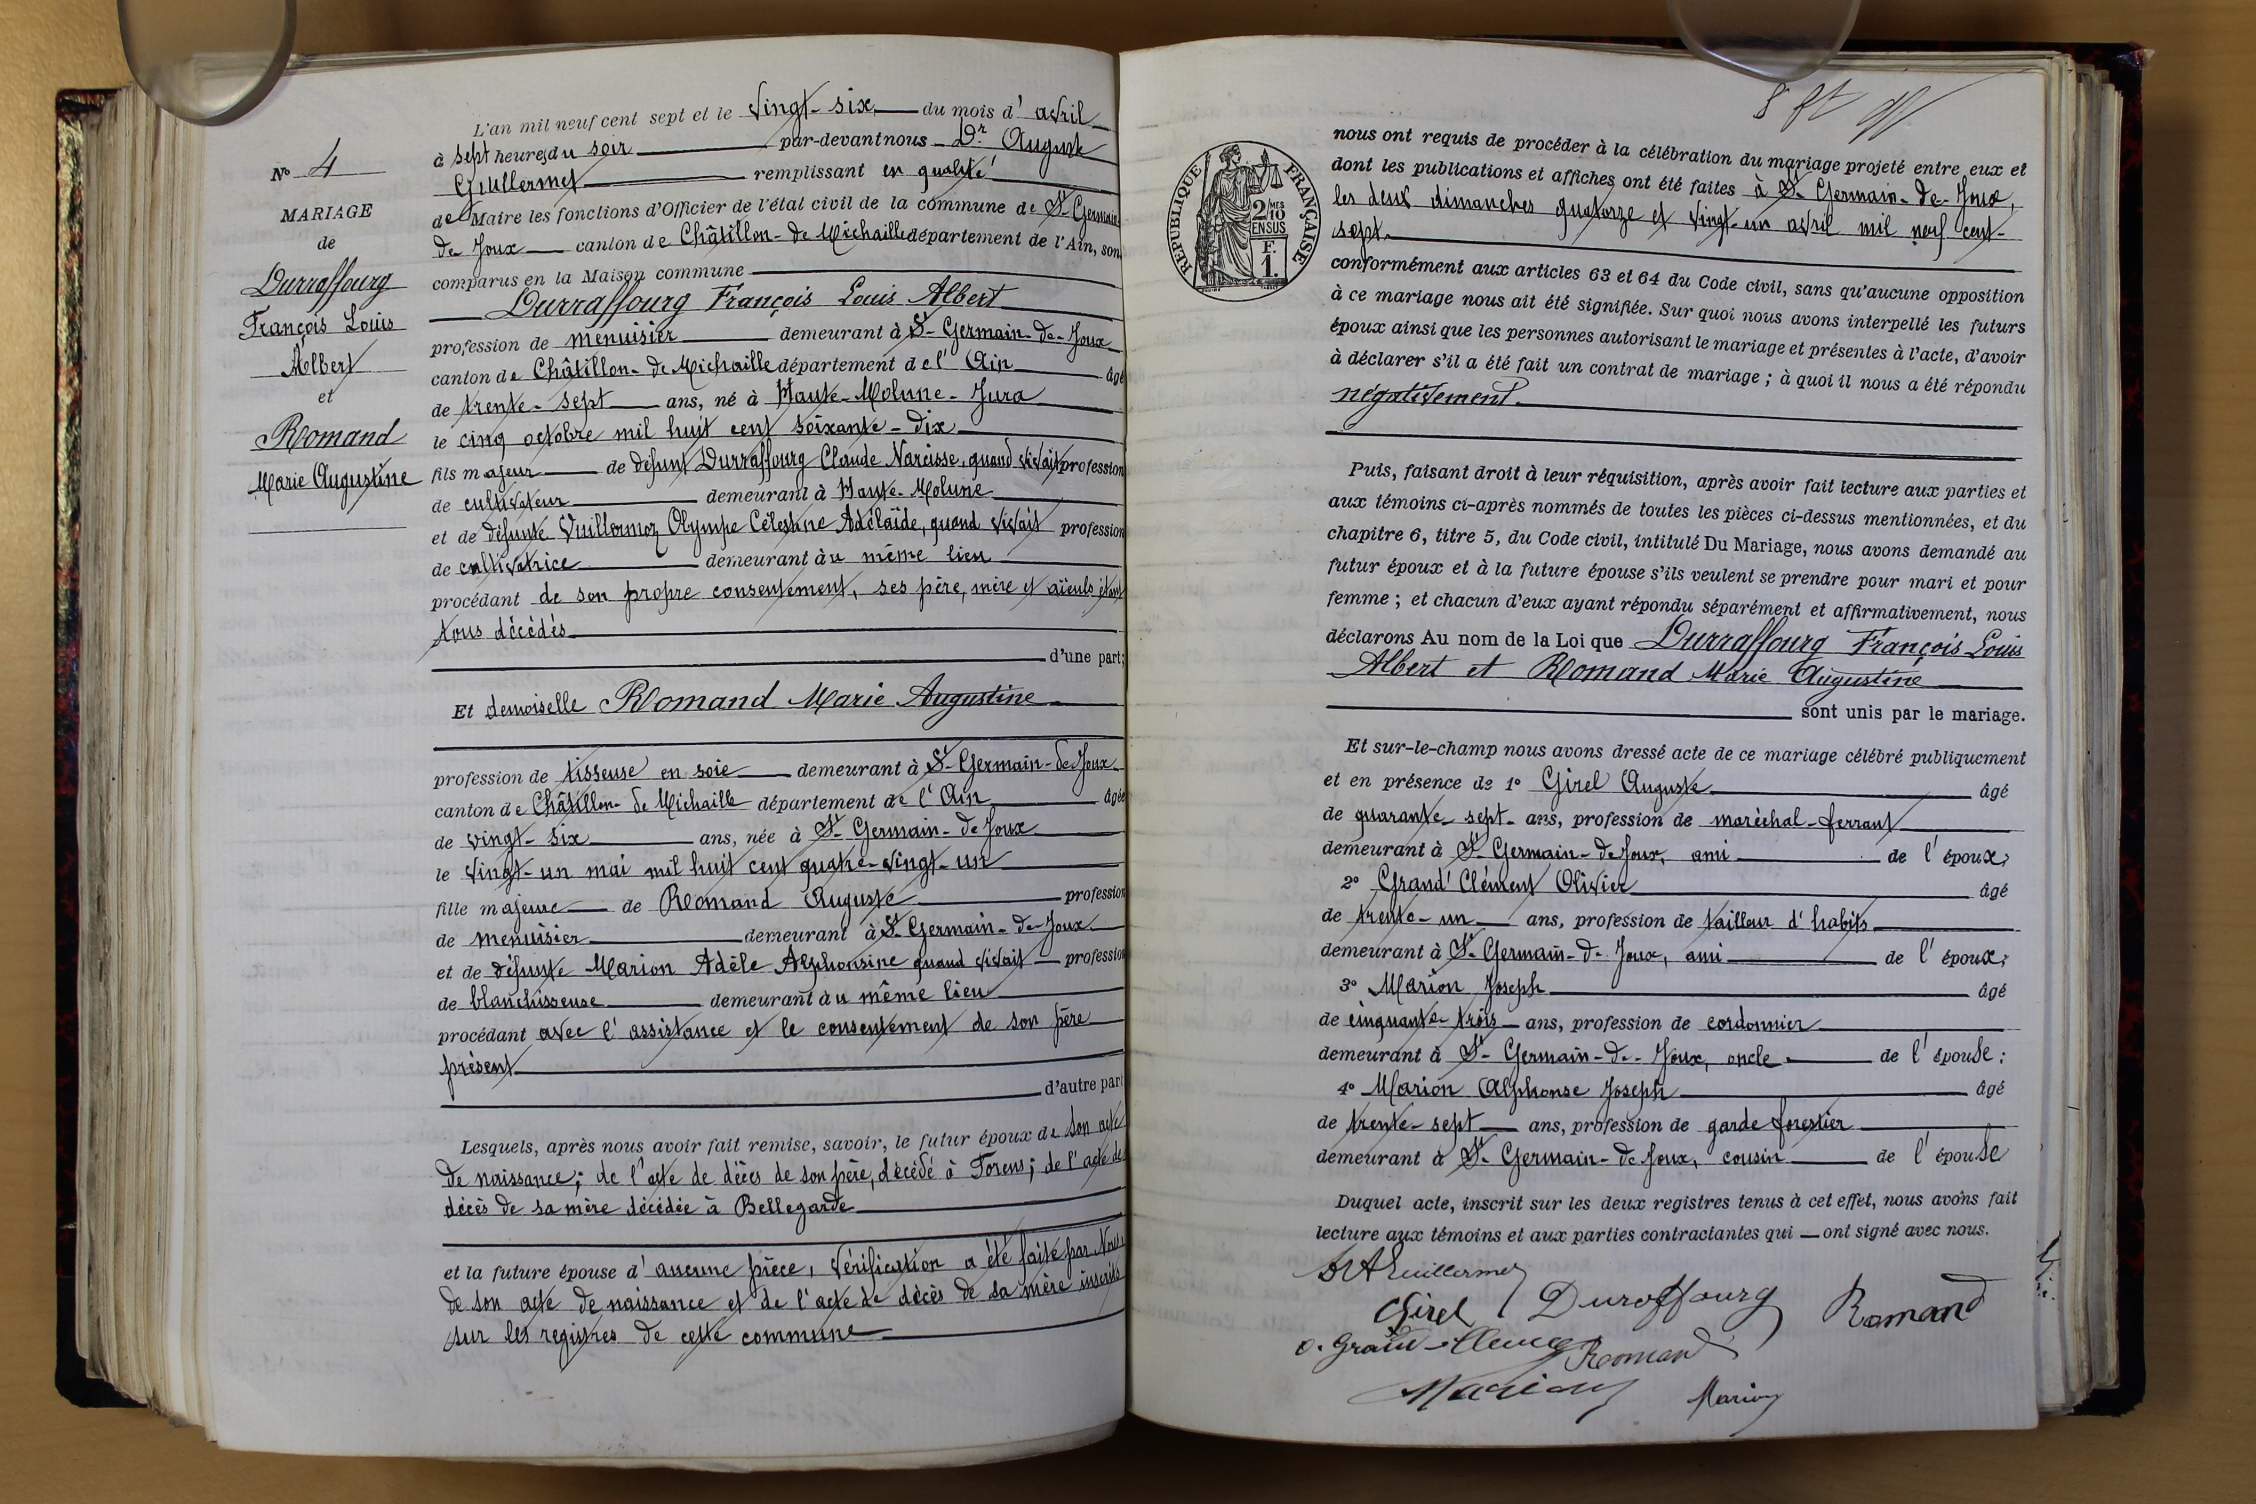 N° 4
MARIAGE
de
Durraffourg
François Louis
Albert
et
Romand
Marie Augustine
L'an mil neuf cent sept et le vingt-six du mois d' avril
à sept heures du soir par-devant nous Dr Auguste
Guillermet remplissant en qualité
de Maire les fonctions d'Officier de l'état civil de la commune de St Germain
de Joux canton de Châtillon-de-Michaille département de l'Ain, sont
comparus en la Maison commune
Durraffourg François Louis Albert
profession de menuisier demeurant à St-Germain-de-Joux
canton de Châtillon-de-Michaille département de l' Ain âgé
de trente-sept ans, né à Haute-Molune-Jura
le cinq octobre mil huit cent soixante-dix
fils majeur de défunt Durraffourg Claude Narcisse, quand vivait profession
de cultivateur demeurant à Haute-Molune
et de défunte Vuillermoz Olympe Célestine Adélaïde, quand vivait profession
de cultivatrice demeurant au même lieu
procédant de son propre consentement, ses père, mère et aïeuls étant
tous décédés
d'une part;
Et demoiselle Romand Marie Augustine
profession de tisseuse en soie demeurant à St-Germain-de-Joux
canton de Châtillon-de-Michaille département de l'Ain âgée
de vingt-six ans, née à St-Germain-de-Joux
le vingt-un mai mil huit cent quatre-vingt-un
fille majeure de Romand Auguste profession
de menuisier demeurant à St-Germain-de-Joux
et de défunte Marion Adèle Alphonsine quand vivait profession
de blanchisseuse demeurant au même lieu
procédant avec l'assistance et le consentement de son père
présent
d'autre part
Lesquels, après nous avoir fait remise, savoir, le futur époux de son acte
de naissance; de l'acte de décès de son père, décédé à Forens; de l'acte de
décès de sa mère décédée à Bellegarde
et la future épouse d'aucune pièce, vérification a été faite par Nous
de son acte de naissance et de l'acte de décès de sa mère inscrits
sur les registres de cette commune
RÉPUBLIQUE FRANÇAISE
2/10 MES
EN SUS
F.
1.
nous ont requis de procéder à la célébration du mariage projeté entre eux et
dont les publications et affiches ont été faites à St-Germain-de-Joux,
les deux dimanches quatorze et vingt-un avril mil neuf cent-
sept.
conformément aux articles 63 et 64 du Code civil, sans qu'aucune opposition
à ce mariage nous ait été signifiée. Sur quoi nous avons interpellé les futurs
époux ainsi que les personnes autorisant le mariage et présentes à l'acte, d'avoir
à déclarer s'il a été fait un contrat de mariage; à quoi il nous a été répondu
négativement.
Puis, faisant droit à leur réquisition, après avoir fait lecture aux parties et
aux témoins ci-après nommés de toutes les pièces ci-dessus mentionnées, et du
chapitre 6, titre 5, du Code civil, intitulé Du Mariage, nous avons demandé au
futur époux et à la future épouse s'ils veulent se prendre pour mari et pour
femme; et chacun d'eux ayant répondu séparément et affirmativement, nous
déclarons Au nom de la Loi que Durraffourg François Louis
Albert et Romand Marie Augustine
sont unis par le mariage.
Et sur-le-champ nous avons dressé acte de ce mariage célébré publiquement
et en présence de 1° Girel Auguste âgé
de quarante-sept ans, profession de maréchal-ferrant
demeurant à St-Germain-de-Joux, ami de l'époux;
2° Grand'Clément Olivier âgé
de trente-un ans, profession de tailleur d'habits
demeurant à St-Germain-de-Joux, ami de l'époux;
3° Marion Joseph âgé
de cinquante-trois ans, profession de cordonnier
demeurant à St-Germain-de-Joux, oncle de l'épouse;
4° Marion Alphonse Joseph âgé
de trente-sept ans, profession de garde forestier
demeurant à St-Germain-de-Joux, cousin de l'épouse
Duquel acte, inscrit sur les deux registres tenus à cet effet, nous avons fait
lecture aux témoins et aux parties contractantes qui ont signé avec nous.
Dr A Guillermet
Girel Duraffourg Romand
O. Grand-Clément Romand
Marion Marion